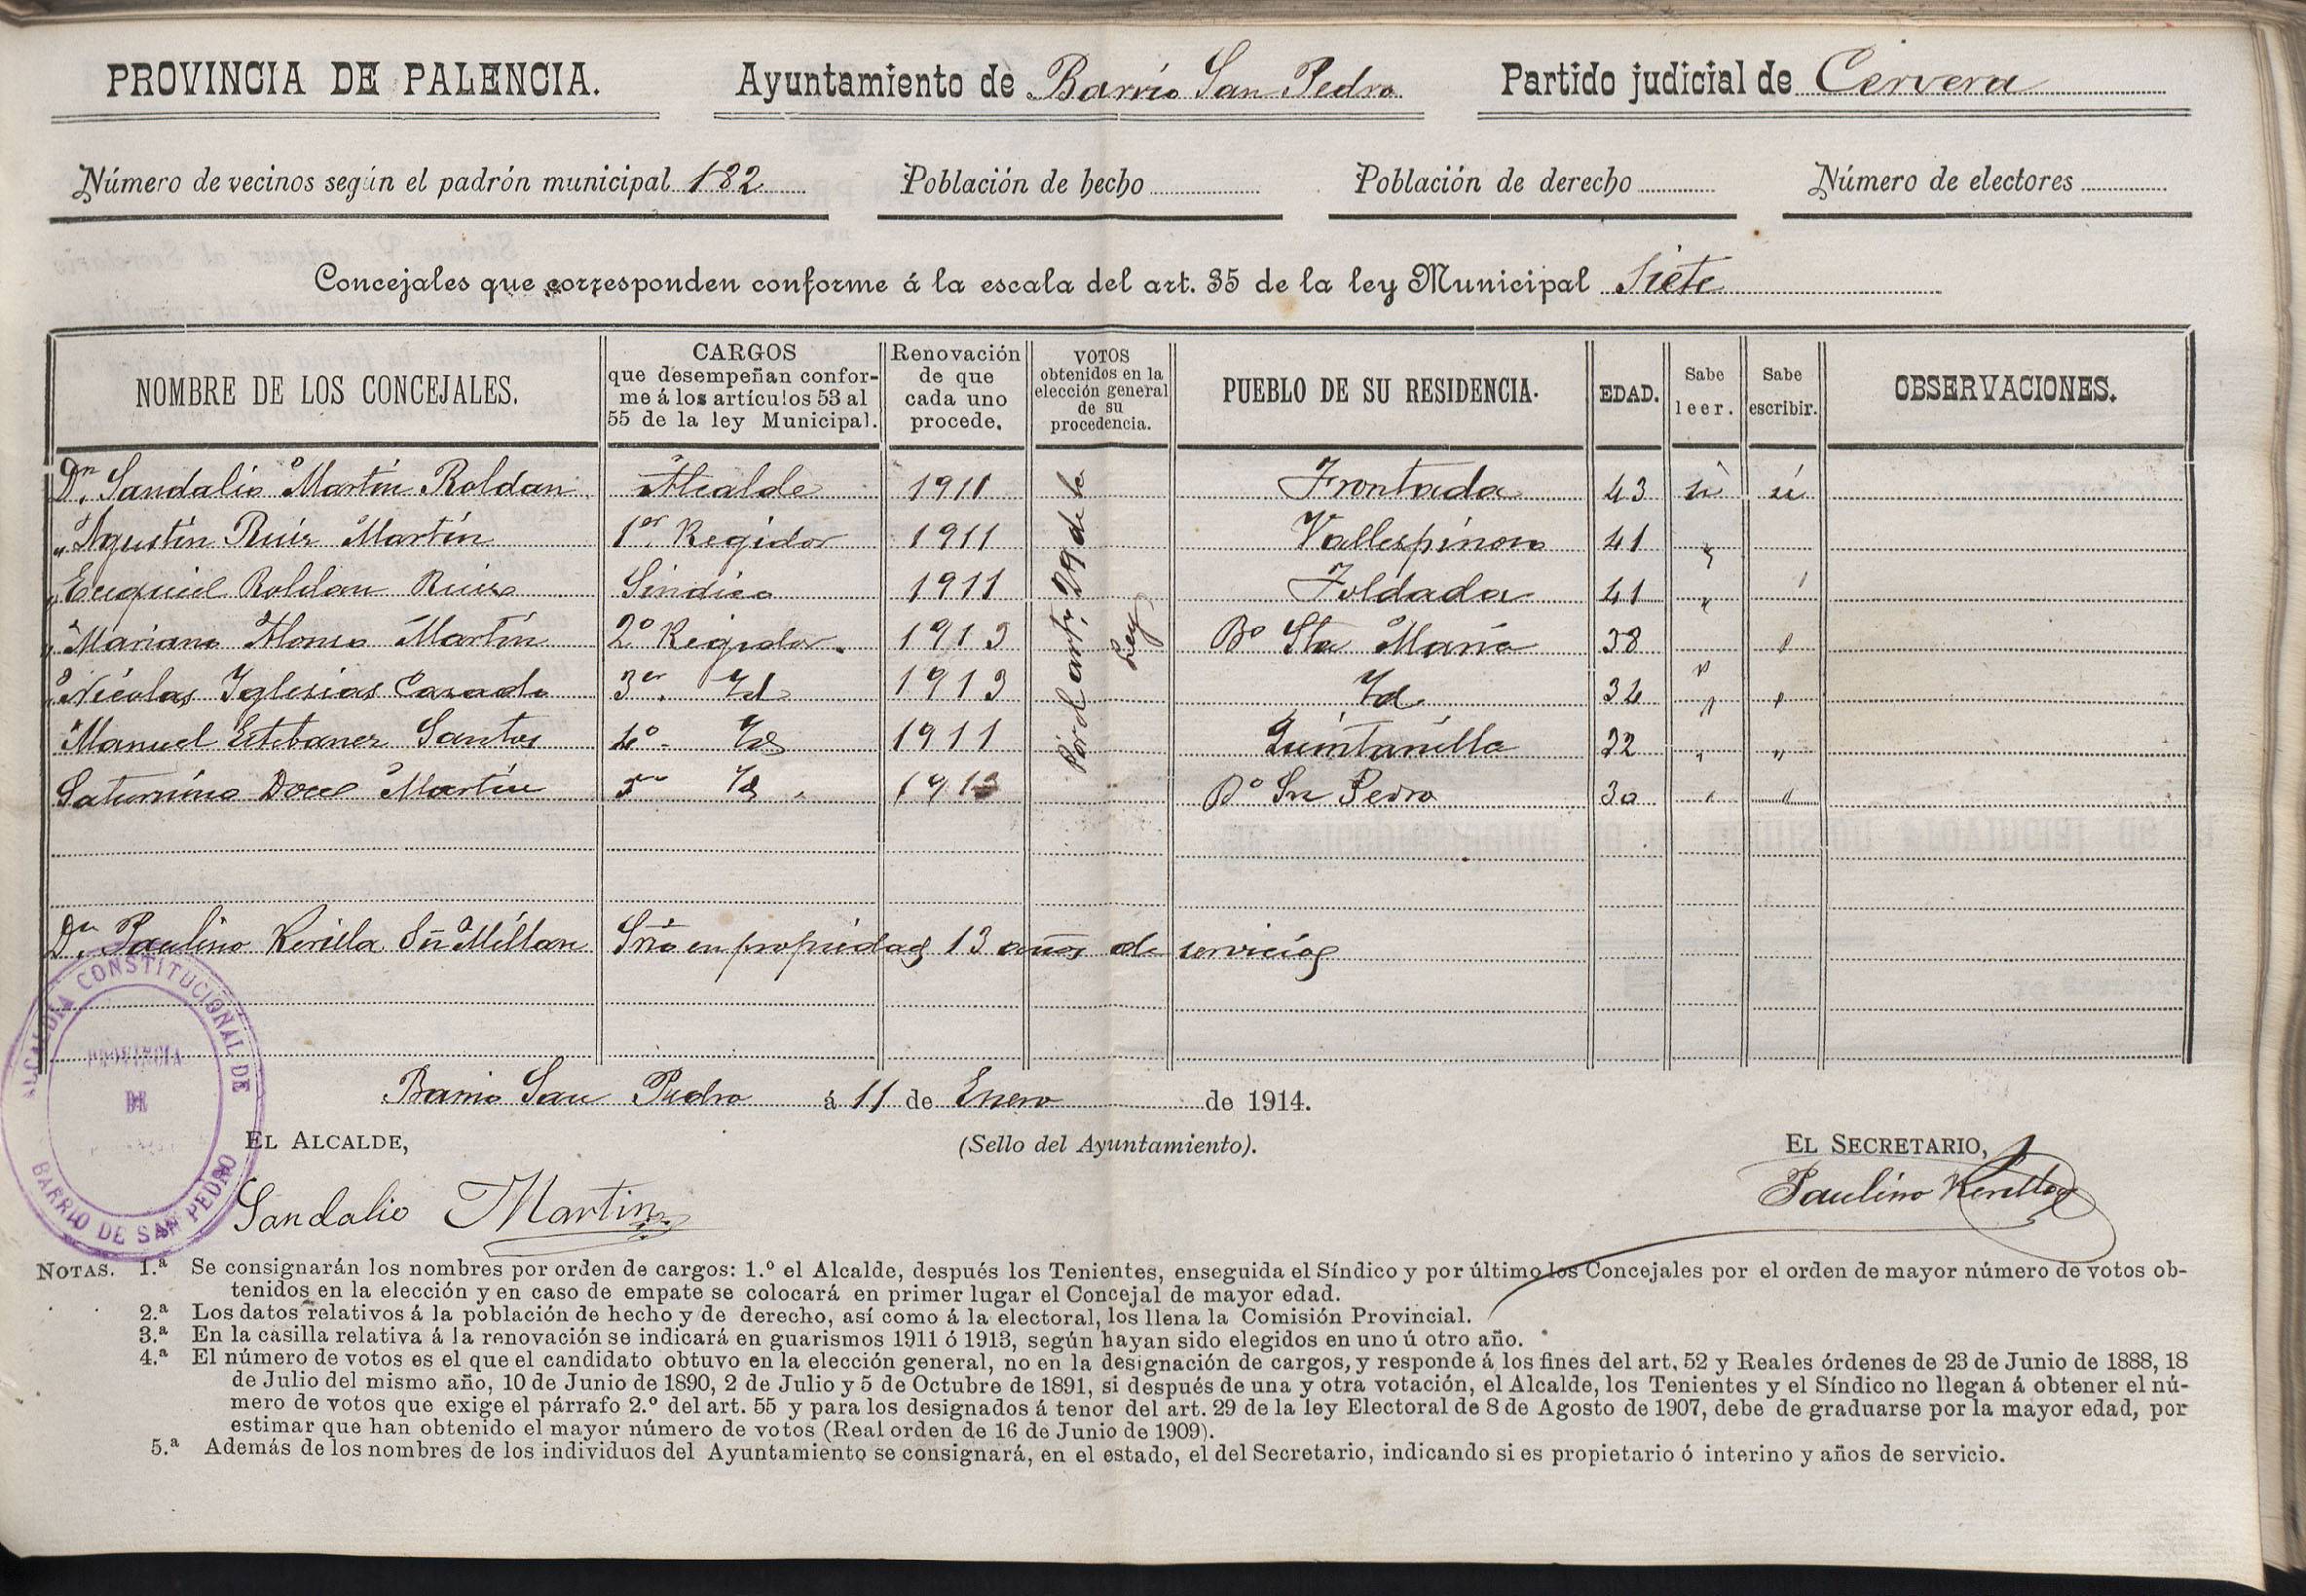 PROVINCIA DE PALENCIA. Ayuntamiento de Barrio San Pedro Partido judicial de Cervera
Número de vecinos según el padrón municipal 182 Población de hecho Población de derecho Número de electores
Concejales que corresponden conforme á la escala del art. 35 de la ley Municipal Siete
NOMBRE DE LOS CONCEJALES. CARGOS que desempeñan confor- me á los artículos 53 al 55 de la ley Municipal. Renovación de que cada uno procede. VOTOS obtenidos en la elección general de su procedencia. PUEBLO DE SU RESIDENCIA. EDAD. Sabe leer. Sabe escribir. OBSERVACIONES.
Dn. Sandalio Martín Roldan Alcalde 1911 Frontada 43 si si
" Agustín Ruiz Martín 1er. Regidor 1911 Vallespinoso 41 "
" Ezequiel Roldan Ruiz Sindico 1911 Foldada 41 " "
" Mariano Alonso Martín 2º Regidor. 1913 Bº Sta María 38 " "
" Nicolas Iglesias Casado 3er. Id 1913 Id. 32 " "
Manuel Estebanez Santos 4º. Id 1911 Quintanilla 32 " "
Saturnino Martín Id. 1913 Bº Sn Pedro 30 " "
Por el artº 29 de la Ley
Dn. Paulino Sn Millan Srio en propiedad 13 años de servicios
ALCALDIA CONSTITUCIONAL DE BARRIO DE SAN PEDRO
PROVINCIA
DE
Barrio San Pedro á 11 de Enero de 1914.
EL ALCALDE, (Sello del Ayuntamiento). EL SECRETARIO,
Sandalio Martin Paulino
NOTAS. 1.ª Se consignarán los nombres por orden de cargos: 1.º el Alcalde, después los Tenientes, enseguida el Síndico y por último los Concejales por el orden de mayor número de votos ob-
tenidos en la elección y en caso de empate se colocará en primer lugar el Concejal de mayor edad.
2.ª Los datos relativos á la población de hecho y de derecho, así como á la electoral, los llena la Comisión Provincial.
3.ª En la casilla relativa á la renovación se indicará en guarismos 1911 ó 1913, según hayan sido elegidos en uno ú otro año.
4.ª El número de votos es el que el candidato obtuvo en la elección general, no en la designación de cargos, y responde á los fines del art. 52 y Reales órdenes de 23 de Junio de 1888, 18
de Julio del mismo año, 10 de Junio de 1890, 2 de Julio y 5 de Octubre de 1891, si después de una y otra votación, el Alcalde, los Tenientes y el Síndico no llegan á obtener el nú-
mero de votos que exige el párrafo 2.º del art. 55 y para los designados á tenor del art. 29 de la ley Electoral de 8 de Agosto de 1907, debe de graduarse por la mayor edad, por
estimar que han obtenido el mayor número de votos (Real orden de 16 de Junio de 1909).
5.ª Además de los nombres de los individuos del Ayuntamiento se consignará, en el estado, el del Secretario, indicando si es propietario ó interino y años de servicio.